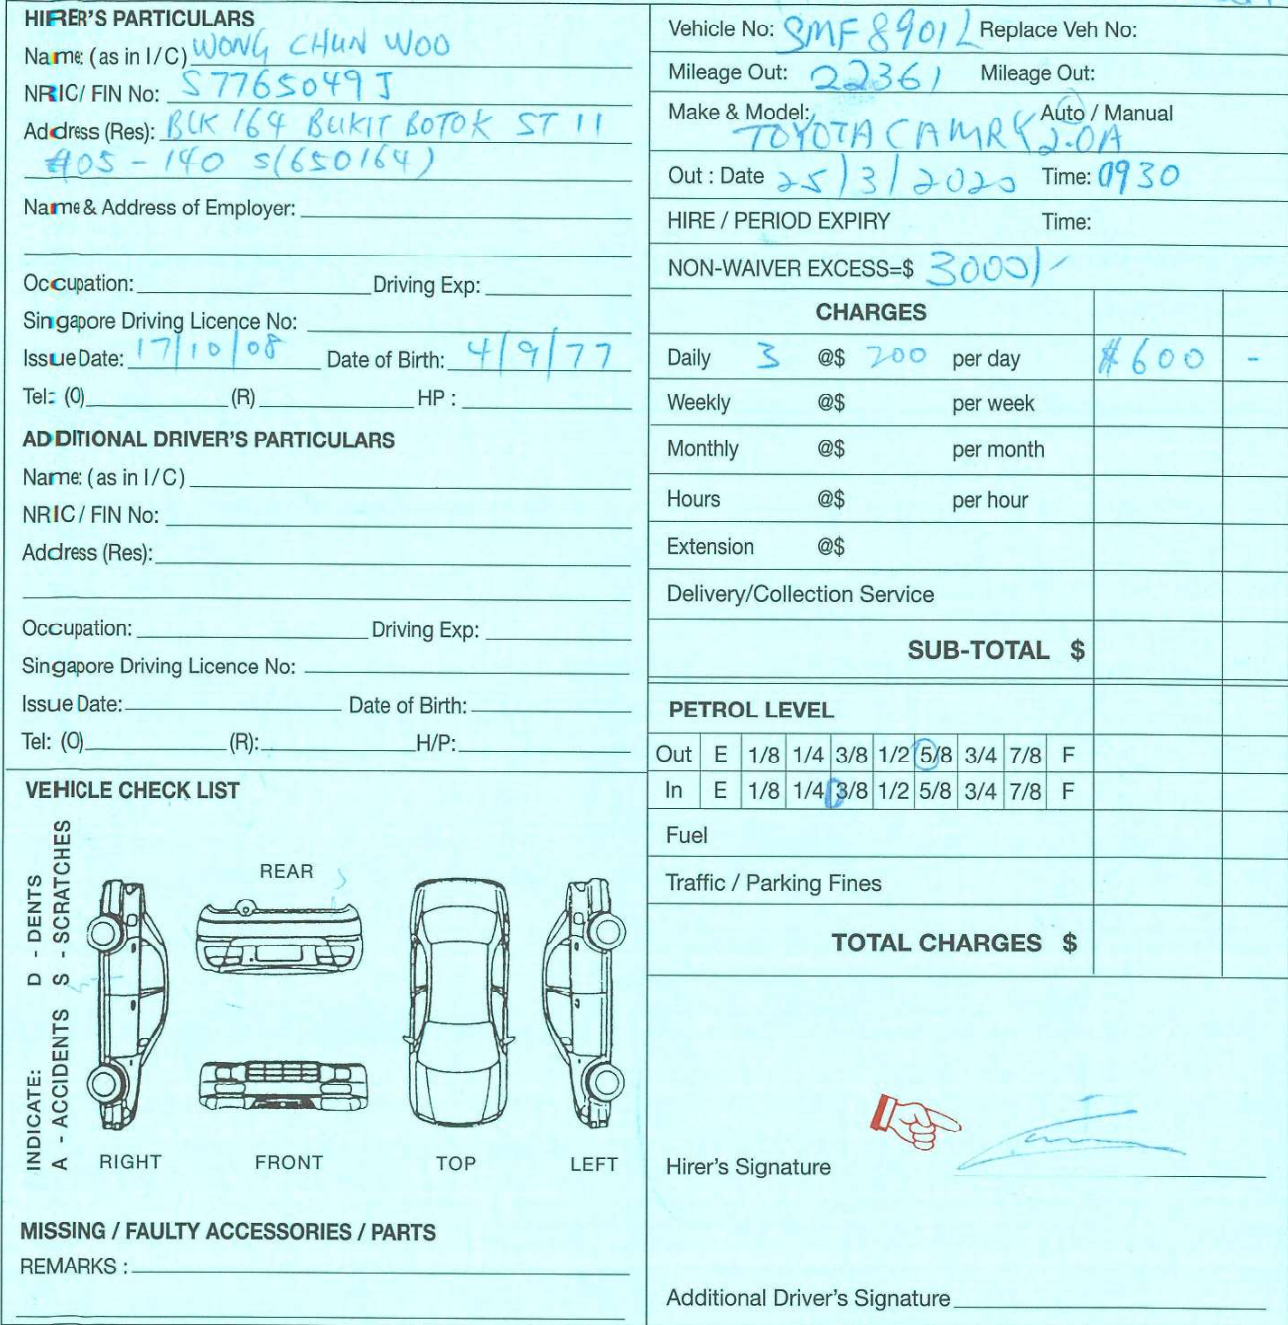 HIRER'S PARTICULARS
Name: (as in I/C) WONG CHUN WOO
NRIC/ FIN No: S7765049J
Address (Res): BLK 164 BUKIT BOTOK ST 11
#05 - 140 S(650164)
Name & Address of Employer:
Occupation: Driving Exp:
Singapore Driving Licence No:
Issue Date: 17/10/08 Date of Birth: 4/9/77
Tel: (O) (R) HP :
ADDITIONAL DRIVER'S PARTICULARS
Name: (as in I/C)
NRIC/ FIN No:
Address (Res):
Occupation: Driving Exp:
Singapore Driving Licence No:
Issue Date: Date of Birth:
Tel: (O) (R): H/P:
VEHICLE CHECK LIST
INDICATE: D - DENTS
A - ACCIDENTS S - SCRATCHES
REAR
RIGHT FRONT TOP LEFT
MISSING / FAULTY ACCESSORIES / PARTS
REMARKS :
Vehicle No: SMF8901L Replace Veh No:
Mileage Out: 22361 Mileage Out:
Make & Model: Auto / Manual
TOYOTA CAMRY 2.0A
Out : Date 25/3/2020 Time: 0930
HIRE / PERIOD EXPIRY Time:
NON-WAIVER EXCESS=$ 3000/-
CHARGES
Daily 3 @$ 200 per day $600 -
Weekly @$ per week
Monthly @$ per month
Hours @$ per hour
Extension @$
Delivery/Collection Service
SUB-TOTAL $
PETROL LEVEL
Out E 1/8 1/4 3/8 1/2 5/8 3/4 7/8 F
In E 1/8 1/4 3/8 1/2 5/8 3/4 7/8 F
Fuel
Traffic / Parking Fines
TOTAL CHARGES $
Hirer's Signature
Additional Driver's Signature